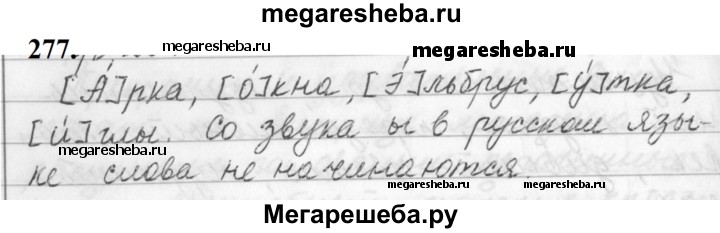 megaresheba.ru
277.
megaresheba.ru megaresheba.ru
[А́]рка, [о́]кна, [Э́]льбрус, [у́]тка,
[и́]глы. Со звука ы в русском язы-
megaresheba.ru
ке слова не начинаются.
megaresheba.ru megaresheba.ru
Мегарешеба.ру